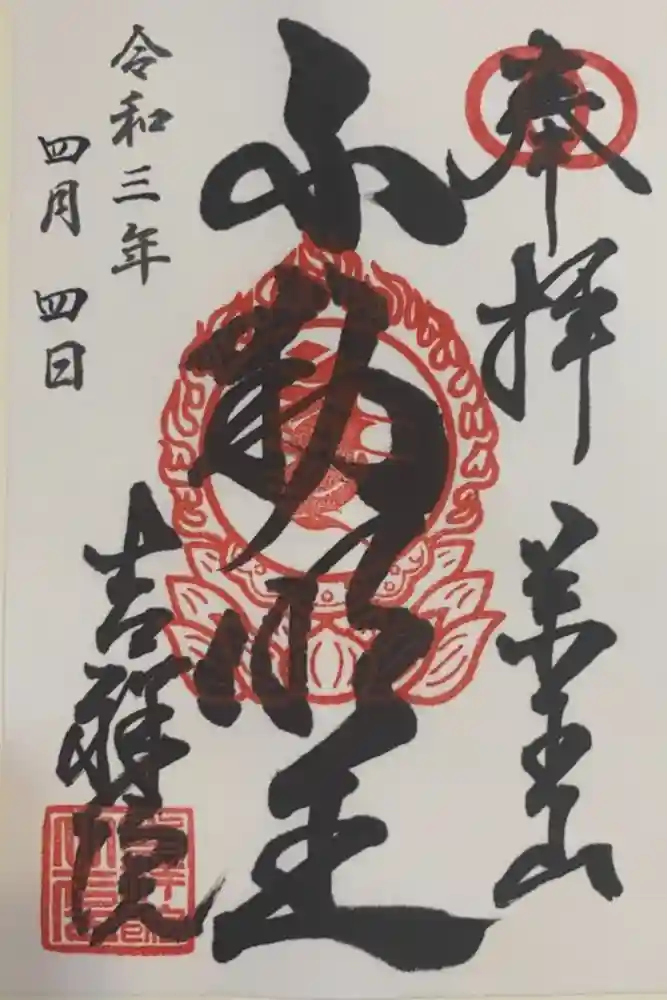 奉拝 薬王山
不動明王
吉祥院
令和三年
四月四日